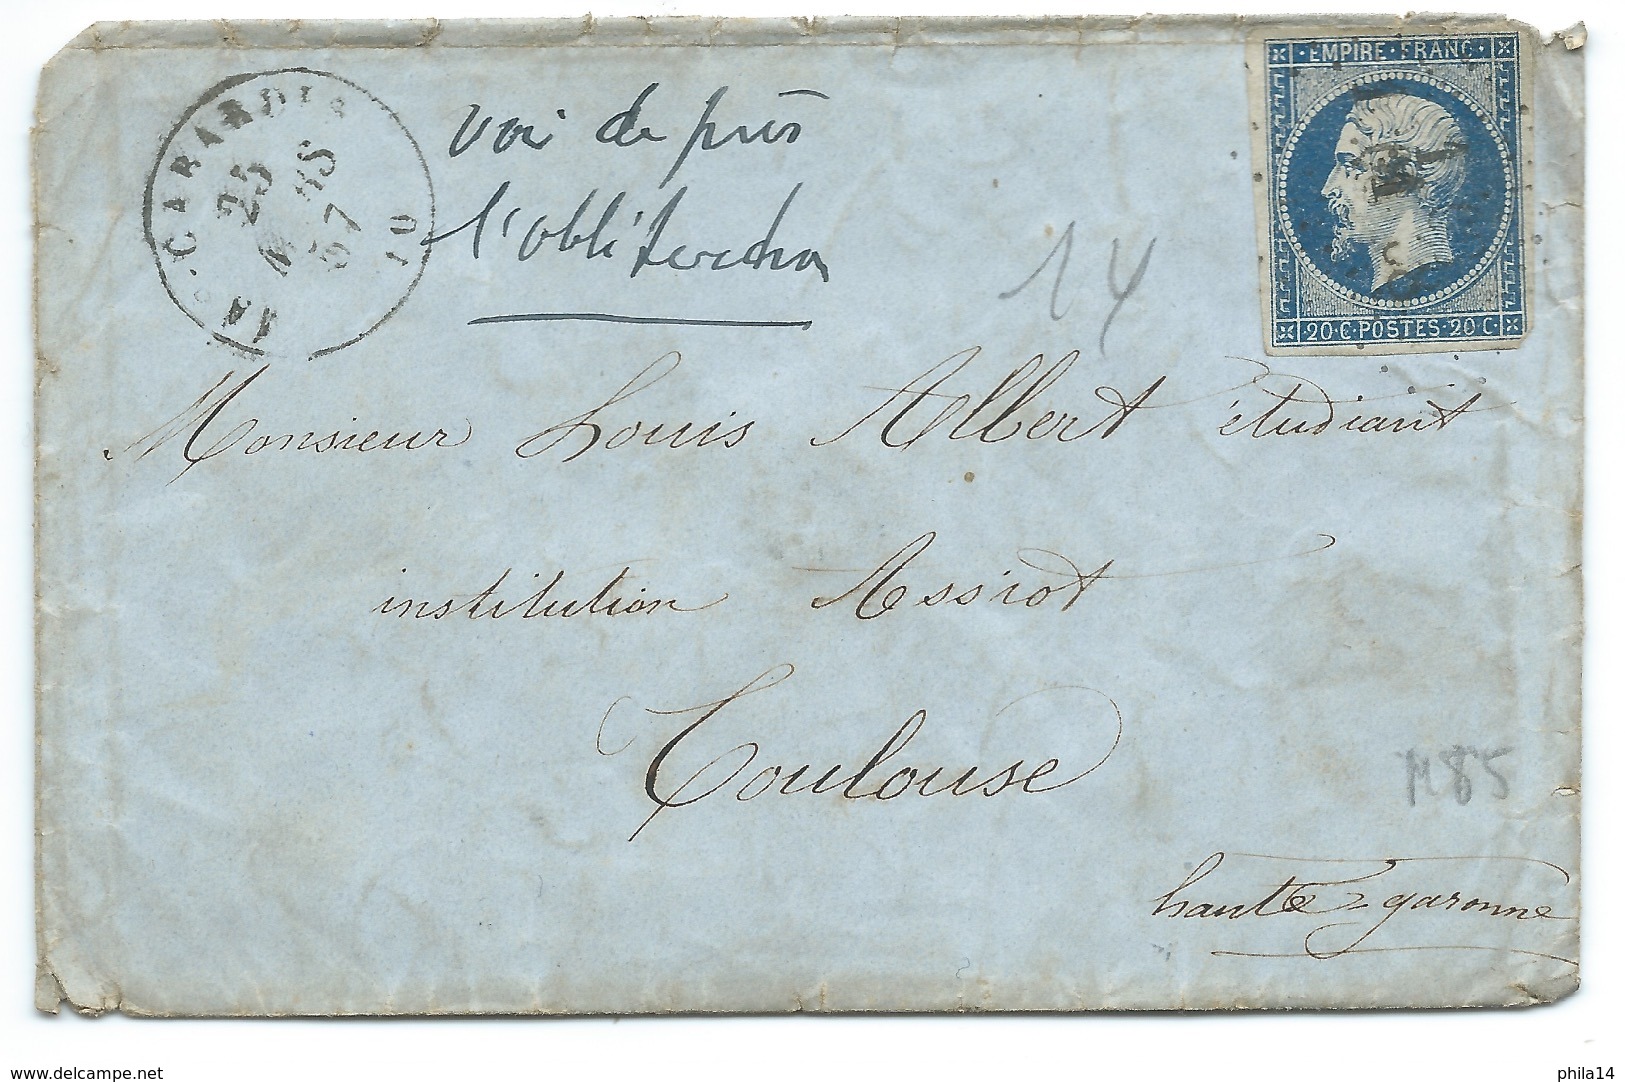 CABARDES
25
MARS
57
10
voir de près
l'obliteration
14
EMPIRE · FRANC ·
20 · C · POSTES · 20 C ·
Monsieur Louis Albert étudiant
institution Assiot
Toulouse
M85
haute garonne
www.delcampe.net
phila14